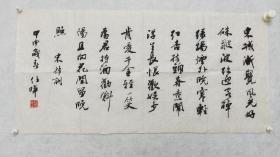 東城漸覺風光好
縠皺波紋迎客棹
綠楊煙外曉寒輕
紅杏枝頭春意鬧
浮生長恨歡娛少
肯愛千金輕一笑
為君持酒勸斜
陽且向花間留晚
照 宋祁詞
甲申